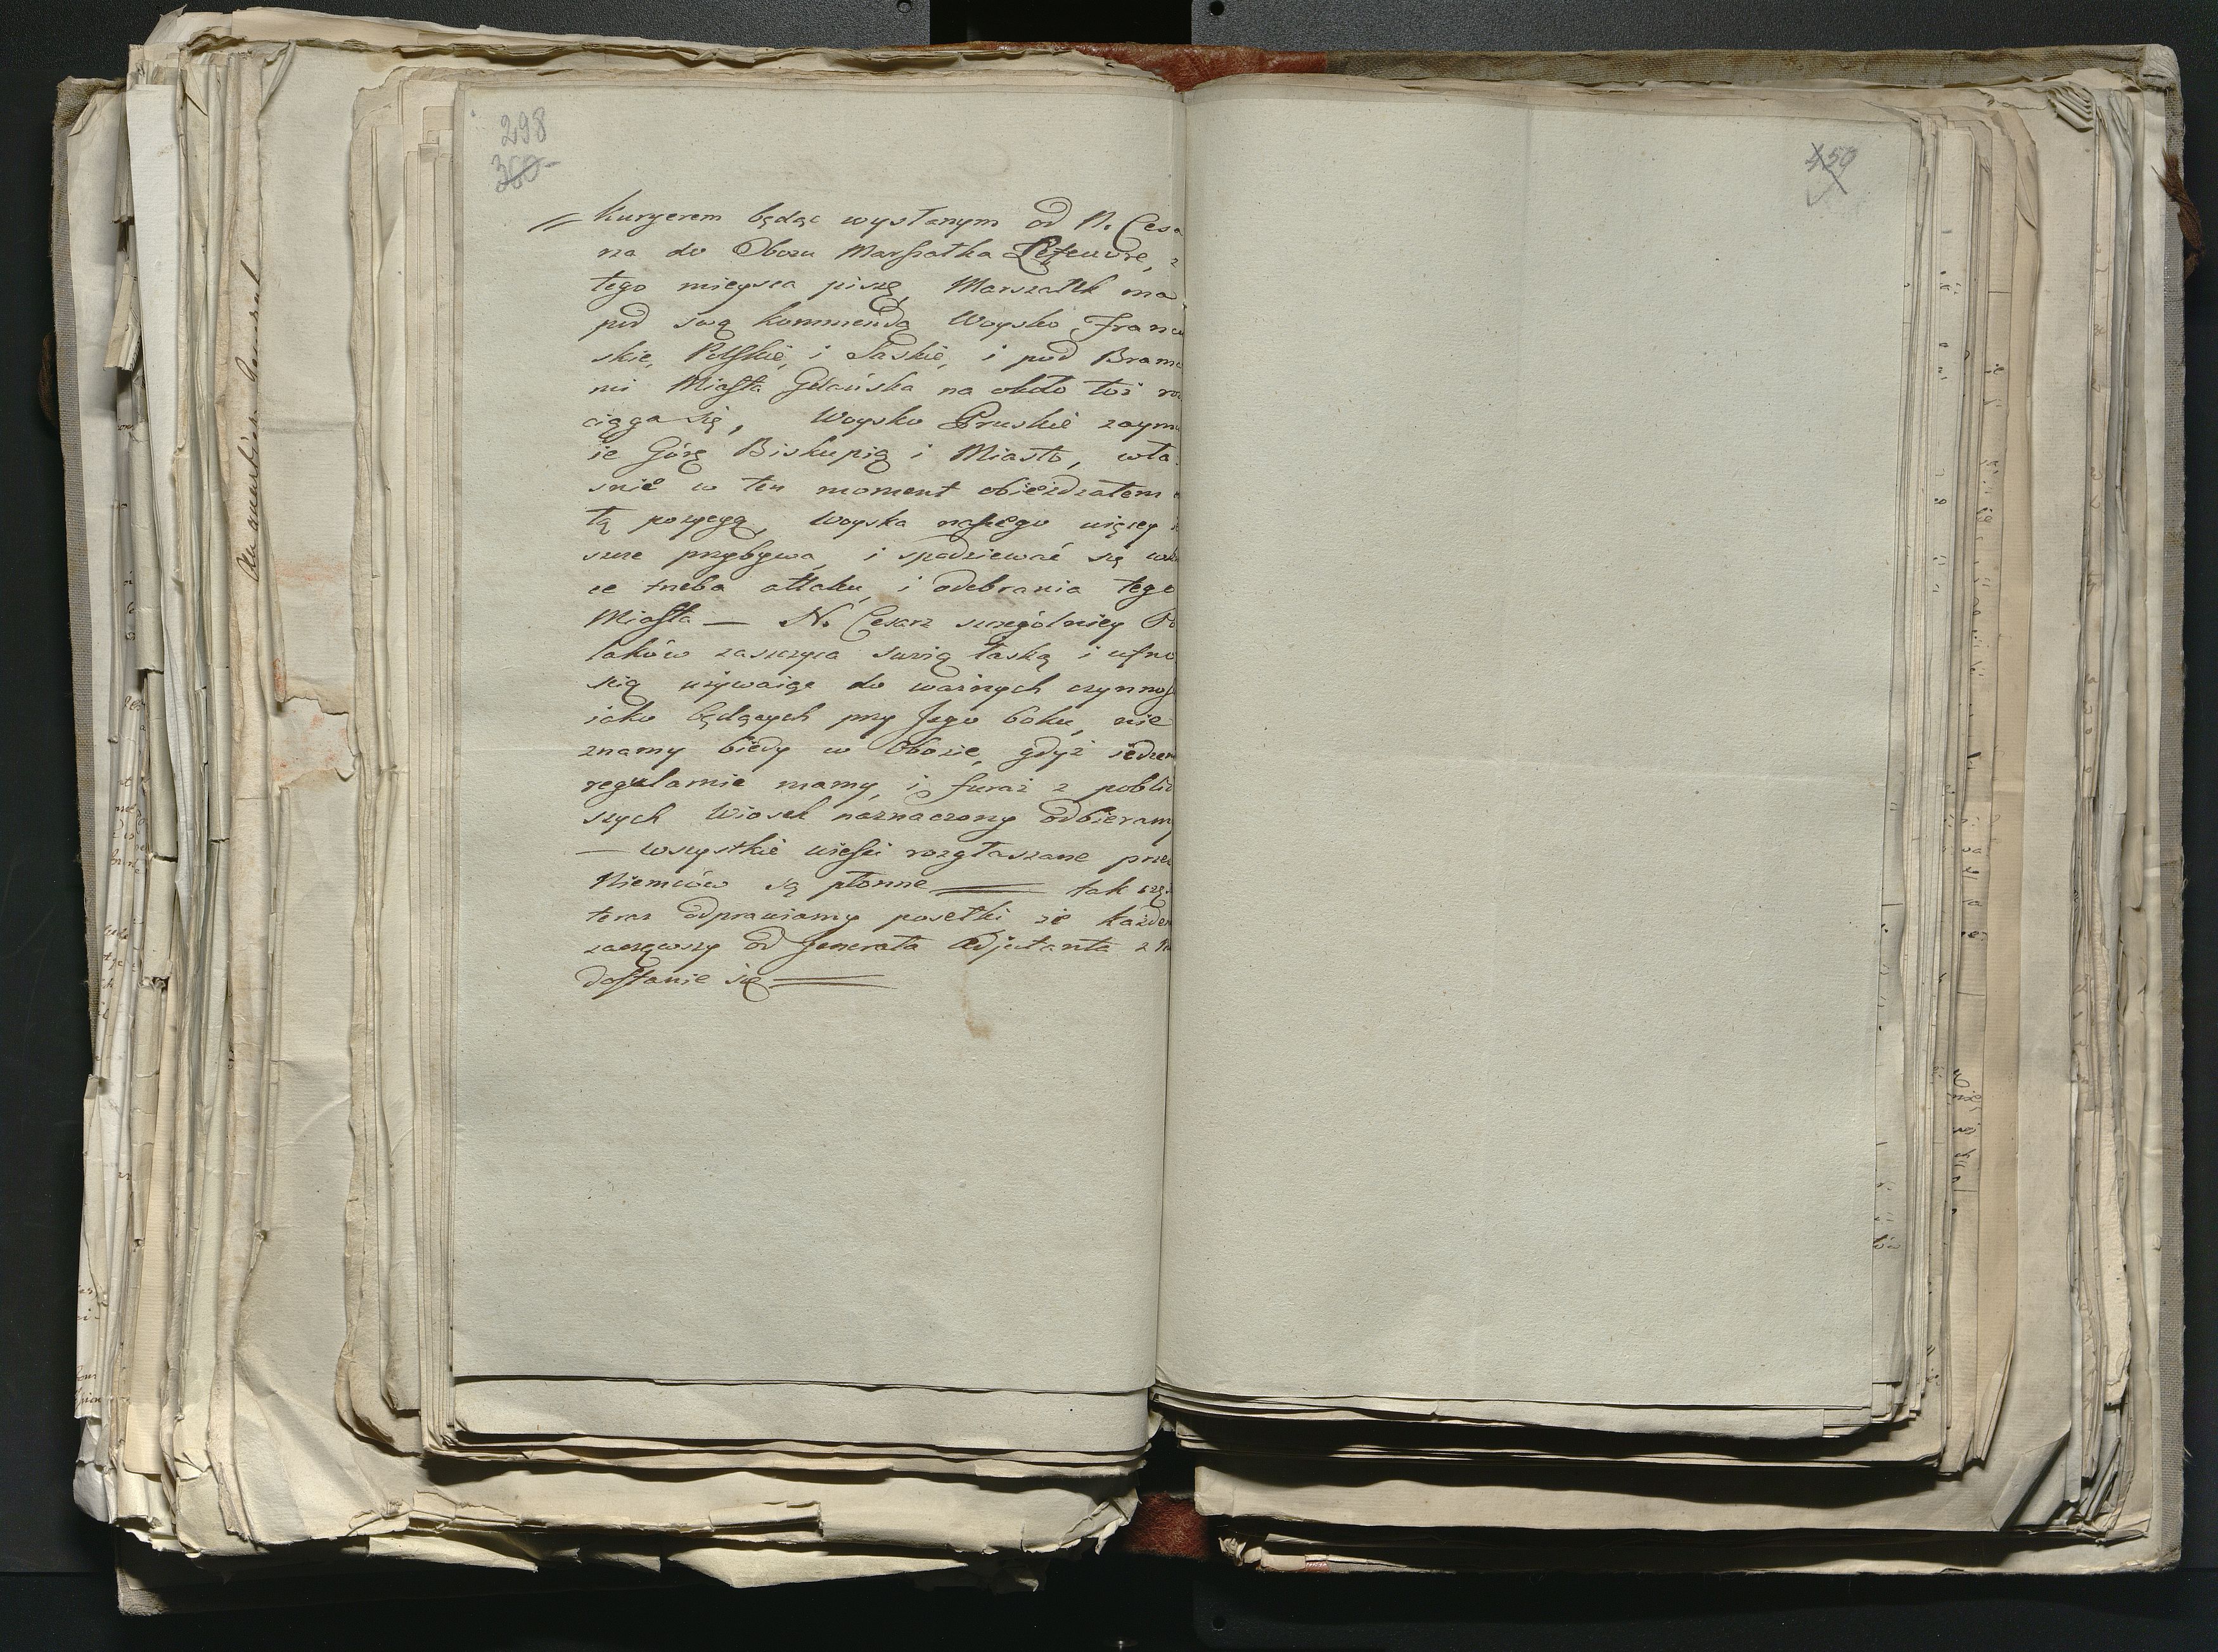 298
360
Kuryerem będąc wysłanym od N. Cesa
rza do Obozu Marszałka Lefeuvre, z
tego mieysca piszę, Marszałek ma
pod swą kommendą Woysko Francu
skie, Polskie, i Saskie, i pod Brama
mi Miasta Gdańska na około toż roz
ciąga się, Woysko Pruskie zaymu
ie Górę Biskupią i Miasto, wła
snie w ten moment obieżdzałem
tą pozycyą, Woyska naszego więcey ie
szcze przybywa, i spodziewać się
ce trzeba attaku, i odebrania tego
Miasta — N. Cesarz szczególniey Po
laków zaszczyca swoią łaską i ufno
scią używaiąc do ważnych czynnoś
iako będących przy Jego boku, nie
znamy biedy w Obozie, gdyż iedzen
regularnie mamy, i furaż z pobliż
szych Wiosek naznaczony odbieramy
— wszystkie wieści rozgłaszane przez
Niemców są płonne — tak czę
teraz odprawiamy posełki że każde
zacząwszy od Generała Adjutanta z
dostanie się —
450